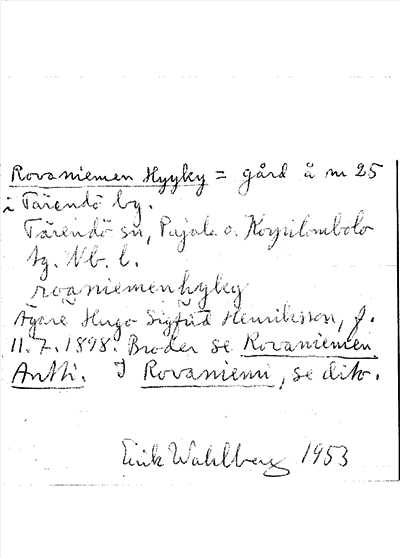 Rovaniemen Hyyky = gård å nr 25
i Tärendö by.
Tärendö sn, Pajala o. Korpilombolo
tg. Nb. l.
roaniemenhyky
Ägare Hugo Sigfrid Henriksson, f.
11.7.1898. Broder se Rovaniemen
Antti. I Rovaniemi, se dito.
Erik Wahlberg 1953